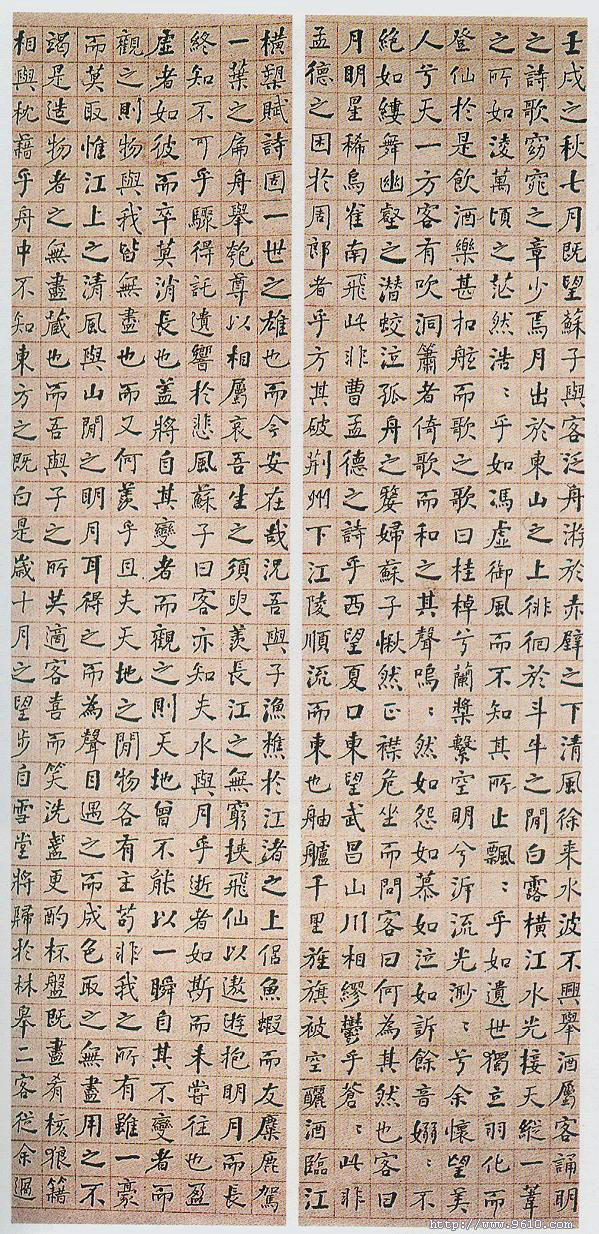 壬戌之秋七月既望蘇子與客泛舟游於赤壁之下清風徐来水波不興舉酒屬客誦明
之詩歌窈窕之章少焉月出於東山之上徘徊於斗牛之閒白露橫江水光接天縱一葦
之所如淩萬頃之茫然浩〻乎如馮虛御風而不知其所止飄〻乎如遺世獨立羽化而
登仙於是飲酒樂甚扣舷而歌之歌曰桂棹兮蘭槳繫空明兮泝流光渺〻兮余懷望美
人兮天一方客有吹洞簫者倚歌而和之其聲嗚〻然如怨如慕如泣如訴餘音嫋〻不
絕如縷舞幽壑之潛蛟泣孤舟之嫠婦蘇子愀然正襟危坐而問客曰何為其然也客曰
月明星稀烏雀南飛此非曹孟德之詩乎西望夏口東望武昌山川相繆鬱乎蒼〻此非
孟德之困於周郎者乎方其破荆州下江陵順流而東也舳艫千里旌旗被空釃酒臨江
橫槊賦詩固一世之雄也而今安在哉況吾與子漁樵於江渚之上侶魚蝦而友麋鹿駕
一葉之扁舟舉匏尊以相屬哀吾生之須臾羨長江之無窮挾飛仙以遨遊抱明月而長
終知不可乎驟得託遺響於悲風蘇子曰客亦知夫水與月乎逝者如斯而未嘗往也盈
虛者如彼而卒莫消長也蓋將自其變者而觀之則天地曾不能以一瞬自其不變者而
觀之則物與我皆無盡也而又何羨乎且夫天地之閒物各有主苟非我之所有雖一豪
而莫取惟江上之清風與山閒之明月耳得之而為聲目遇之而成色取之無盡用之不
竭是造物者之無盡藏也而吾與子之所共適客喜而笑洗盞更酌杯盤既盡肴核狼籍
相與枕藉乎舟中不知東方之既白是歲十月之望步自雪堂將歸於林皋二客從余過
http://www.9610.com